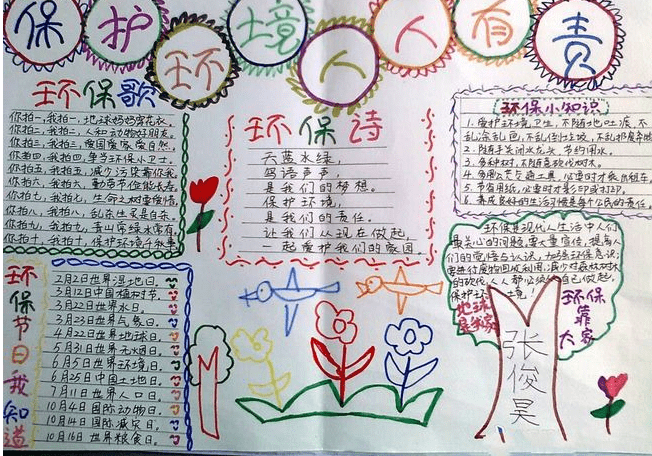 保护环境人人有责
环保歌
你拍一,我拍一,地球妈妈穿花衣。
你拍二,我拍二,人和动物好朋友。
你拍三,我拍三,爱国爱家爱自然。
你拍四,我拍四,争当环保小卫士。
你拍五,我拍五,减少污染靠你我。
你拍六,我拍六,
你拍七,我拍七,生命之树要爱惜。
你拍八,我拍八,
你拍九,我拍九,青山常绿水常有。
你拍十,我拍十,保护环境
环保诗
天蓝水绿,
鸟语声声,
是我们的梦想。
保护环境,
是我们的责任。
让我们从现在做起,
一起爱护我们的家园。
环保小知识
1.爱护环境卫生,不随地吐痰,不
乱涂乱画,不乱倒垃圾,不乱
2.随手关闭水龙头,节约用水。
3.多种树,不随意砍伐树木。
4.多用公共交通工具,必要时才
5.节省用纸,必要时才影印或打印。
6.养成良好的生活习惯是每个公民的责任。
环保是现代人生活中人们
最关心的问题,要大量宣传,提高人
们的觉悟与认识,加强环保意识;
的砍伐,人人都必须从自己做起,
保护环境
地球
是我家
环保
靠
大家
张俊昊
环保节日我知道
2月2日世界湿地日。
3月12日中国植树节。
3月22日世界水日。
3月23日世界气象日。
4月22日世界地球日。
5月31日世界无烟日。
6月5日世界环境日。
6月25日中国土地日。
7月11日世界人口日。
10月4日国际动物日。
10月14日国际减灾日。
10月16日世界粮食日。